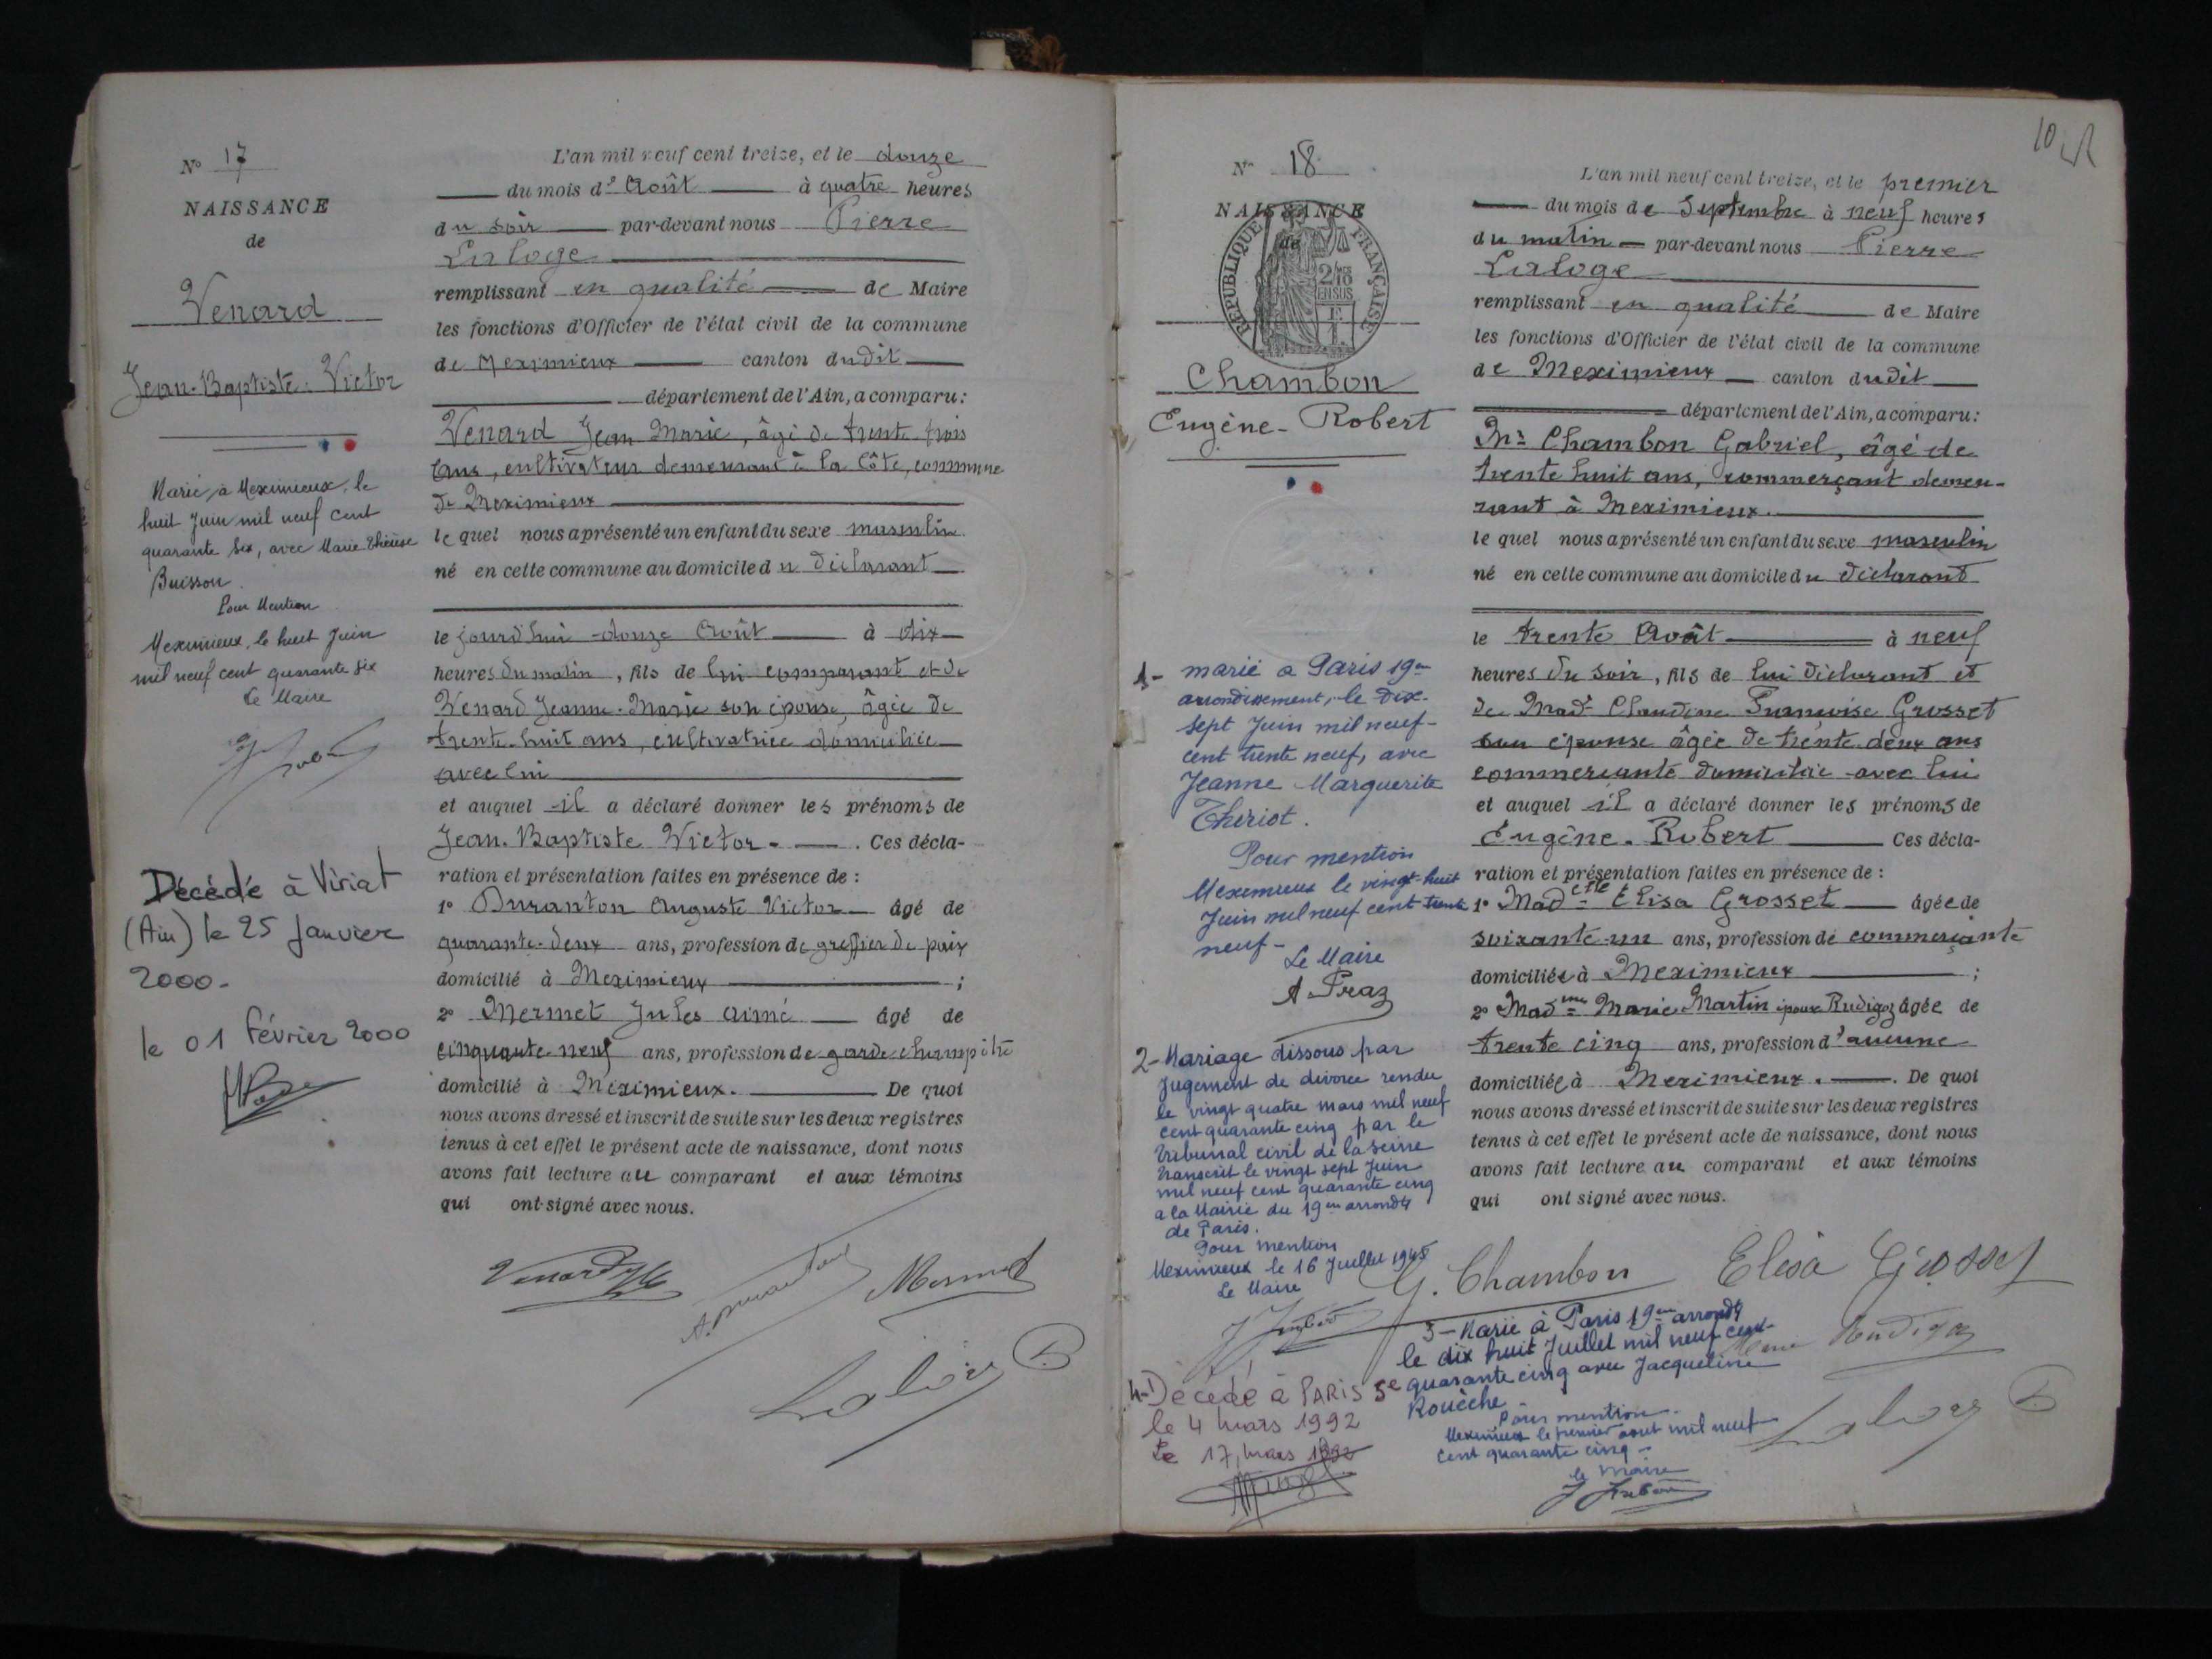 N° 17
NAISSANCE
de
Venard
Jean-Baptiste-Victor
Marié à Meximieux, le
huit Juin mil neuf cent
quarante six, avec Marie Thérèse
Buisson.
Pour Mention
Meximieux, le huit Juin
mil neuf cent quarante six
Le Maire
Décédé à Viriat
(Ain) le 25 Janvier
2000.
le 01 Février 2000
L'an mil neuf cent treize, et le douze
du mois d'Août à quatre heures
du soir par-devant nous Pierre
Laloge
remplissant en qualité de Maire
les fonctions d'Officier de l'état civil de la commune
de Meximieux canton dudit
département de l'Ain, a comparu:
Venard Jean Marie, âgé de trente-trois
ans, cultivateur demeurant à la Côte, commune
de Meximieux
lequel nous a présenté un enfant du sexe masculin
né en cette commune au domicile du déclarant
le jourd'hui douze Août à dix
heures du matin, fils de lui comparant et de
Venard Jeanne-Marie son épouse, âgée de
trente-huit ans, cultivatrice domiciliée
avec lui
et auquel il a déclaré donner les prénoms de
Jean-Baptiste Victor. Ces décla-
ration et présentation faites en présence de:
1° Duranton Auguste Victor âgé de
quarante-deux ans, profession de greffier de paix
domicilié à Meximieux;
2° Mermet Jules Aimé âgé de
cinquante-neuf ans, profession de garde champêtre
domicilié à Meximieux. De quoi
nous avons dressé et inscrit de suite sur les deux registres
tenus à cet effet le présent acte de naissance, dont nous
avons fait lecture au comparant et aux témoins
qui ont signé avec nous.
Venard
A. Duranton
Mermet
Laloge
10
N° 18
NAISSANCE
de
RÉPUBLIQUE FRANÇAISE
2/10
EN SUS
Chambon
Eugène-Robert
1- marié a Paris 19em
arrondissement, le dix-
sept Juin mil neuf-
cent trente neuf, avec
Jeanne Marguerite
Theriot.
Pour mention
Meximieux le vingt-huit
Juin mil neuf cent trente
neuf-
Le Maire
A. Praz
2- Mariage dissous par
jugement de divorce rendu
le vingt quatre mars mil neuf
cent quarante cinq par le
tribunal civil de la seine
transcrit le vingt sept Juin
mil neuf cent quarante cinq
a la Mairie du 19em arrondt
de Paris.
Pour mention
Meximieux le 16 Juillet 1945
Le Maire
4- Décédé à PARIS 5e
le 4 mars 1992
Le 17 mars 1992
L'an mil neuf cent treize, et le premier
du mois de Septembre à neuf heures
du matin par-devant nous Pierre
Laloge
remplissant en qualité de Maire
les fonctions d'Officier de l'état civil de la commune
de Meximieux canton dudit
département de l'Ain, a comparu:
Mr Chambon Gabriel, âgé de
trente huit ans, commerçant demeu-
rant à Meximieux.
lequel nous a présenté un enfant du sexe masculin
né en cette commune au domicile du déclarant
le trente Août à neuf
heures du soir, fils de lui déclarant et
de Made Claudine Françoise Grosset
son épouse âgée de trente-deux ans
commerçante domiciliée avec lui
et auquel il a déclaré donner les prénoms de
Eugène-Robert Ces décla-
ration et présentation faites en présence de:
1° Madelle Elisa Grosset âgée de
soixante-un ans, profession de commerçante
domiciliée à Meximieux;
2° Madme Marie Martin épouse Rudigoz âgée de
trente cinq ans, profession d'aucune
domiciliée à Meximieux. De quoi
nous avons dressé et inscrit de suite sur les deux registres
tenus à cet effet le présent acte de naissance, dont nous
avons fait lecture au comparant et aux témoins
qui ont signé avec nous.
G. Chambon
Elisa Grosset
3- Marié à Paris 19em arrondt
le dix huit Juillet mil neuf cent
quarante cinq avec Jacqueline
Rouèche
Pour mention.
Meximieux le premier août mil neuf
cent quarante cinq-
le Maire
Rudigoz
Laloge